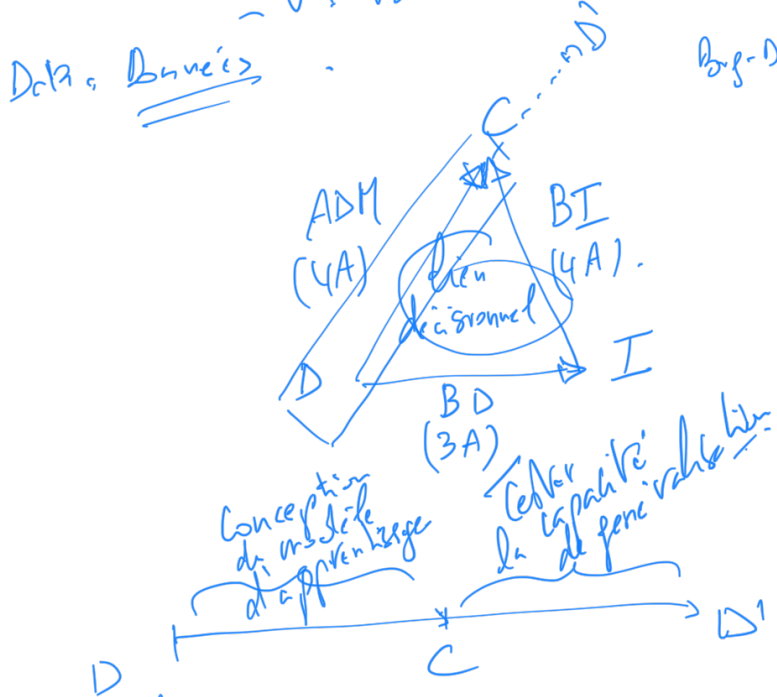 Data, Données
D'
C
ADM
(4A)
BI
(4A).
lien
décisionnel
D
I
BD
(3A)
Conception
du modèle
d'apprentissage
Tester
la capacité
de généralisation
D
C
D'